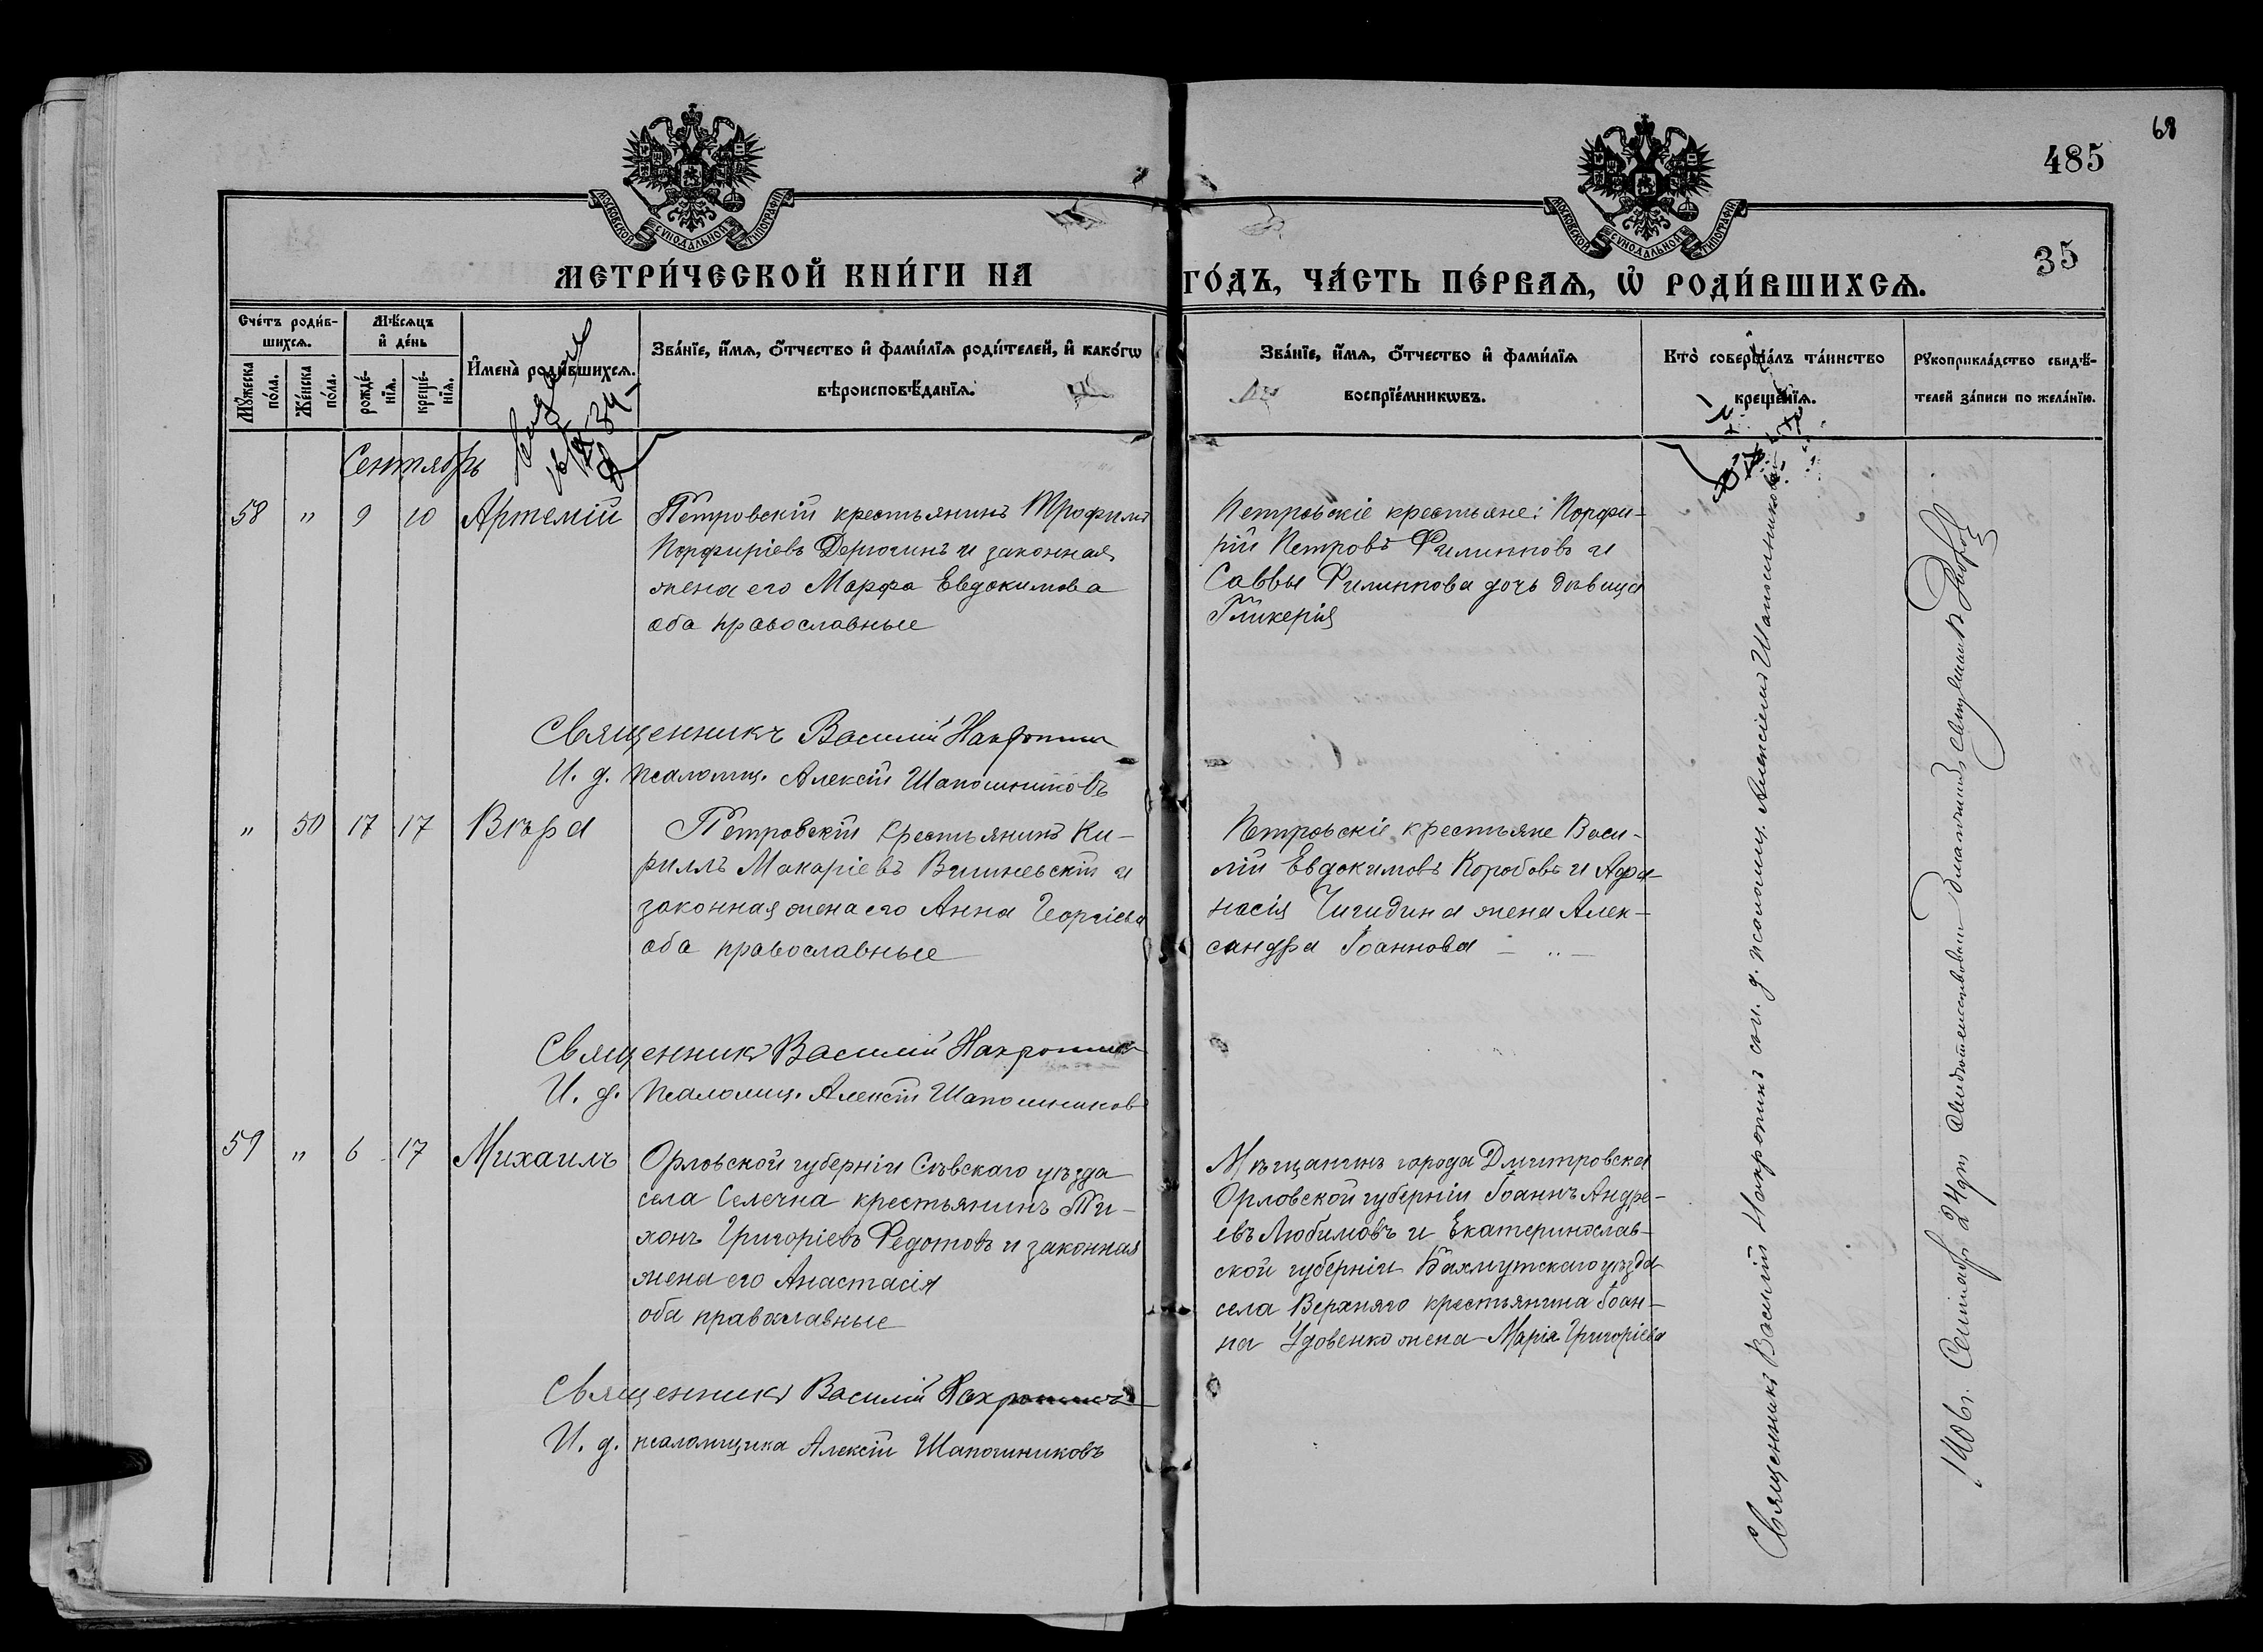 68
485
35
МОСКОВСКОЙ СѴНОДАЛЬНОЙ ТИПОГРАФІИ
МОСКОВСКОЙ СѴНОДАЛЬНОЙ ТИПОГРАФІИ
МЕТРИ́ЧЕСКОЙ КНИ́ГИ НА
ГО́ДЪ, ЧА́СТЬ ПЕ́РВАѦ, Ѡ҆ РОДИ́ВШИХСѦ.
Сче́тъ роди́в-
шихсѧ.
Мѣ́сѧцъ
и҆ де́нь
Мꙋ́жеска
по́ла.
Же́нска
по́ла.
рожде́-
нїѧ.
креще́-
нїѧ.
И҆мена̀ роди́вшихсѧ.
Зва́нїе, и҆́мѧ, ѻ҆́тчество и҆ фами́лїѧ роди́телей, и҆ како́гѡ
вѣроисповѣ́данїѧ.
Зва́нїе, и҆́мѧ, ѻ҆́тчество и҆ фами́лїѧ
воспрїе́мникѡвъ.
Кто̀ соверша́лъ та́инство
креще́нїѧ.
Рꙋкоприкла́дство свидѣ́-
телей за́писи по жела́нїю.
Сентябрь
58 " 9 10 Артемій
Петровскій крестьянинъ Трофимъ
Порфиріевъ Дерюгинъ и законная
жена его Марфа Евдокимова
оба православные
Петровскіе крестьяне: Порфи-
рій Петровъ Филипповъ и
Саввы Филиппова дочь дѣвица
Гликерія
Священникъ Василій
И. д. псаломщ. Алексій Шапошниковъ
" 50 17 17 Вѣра
Петровскій крестьянинъ Ки-
риллъ Макаріевъ Вишневскій и
законная жена его Анна Георгіева
оба православные
Петровскіе крестьяне Васи-
лій Евдокимовъ Коробовъ и Афа-
насія Чигидина жена Алек-
сандра Іоаннова — " —
Священникъ Василій
И. д. псаломщ. Алексій Шапошниковъ
59 " 6 17 Михаилъ
Орловской губерніи Сѣвскаго уѣзда
села Селечна крестьянинъ Ти-
хонъ Григоріевъ Федотовъ и законная
жена его Анастасія
оба православные
Мѣщанинъ города Дмитровска
Орловской губерніи Іоаннъ Андре-
евъ Любимовъ и Екатеринослав-
ской губерніи Бахмутскаго уѣзда
села Верхняго крестьянина Іоан-
на Удовенко жена Марія Григоріева
Священникъ Василій
И. д. псаломщика Алексій Шапошниковъ
Священникъ Василій с и. д. псаломщ. Алексіемъ Шапошниковымъ
1906 г. Сентября 24 дня